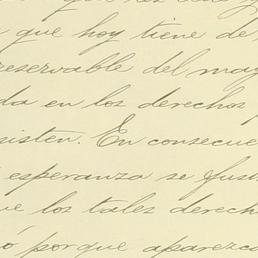 que hoy tiene de
reservable del may
da en los derechos
sisten. En consecue
esperanza se fust
ue los tales derech
ó porque aparezca